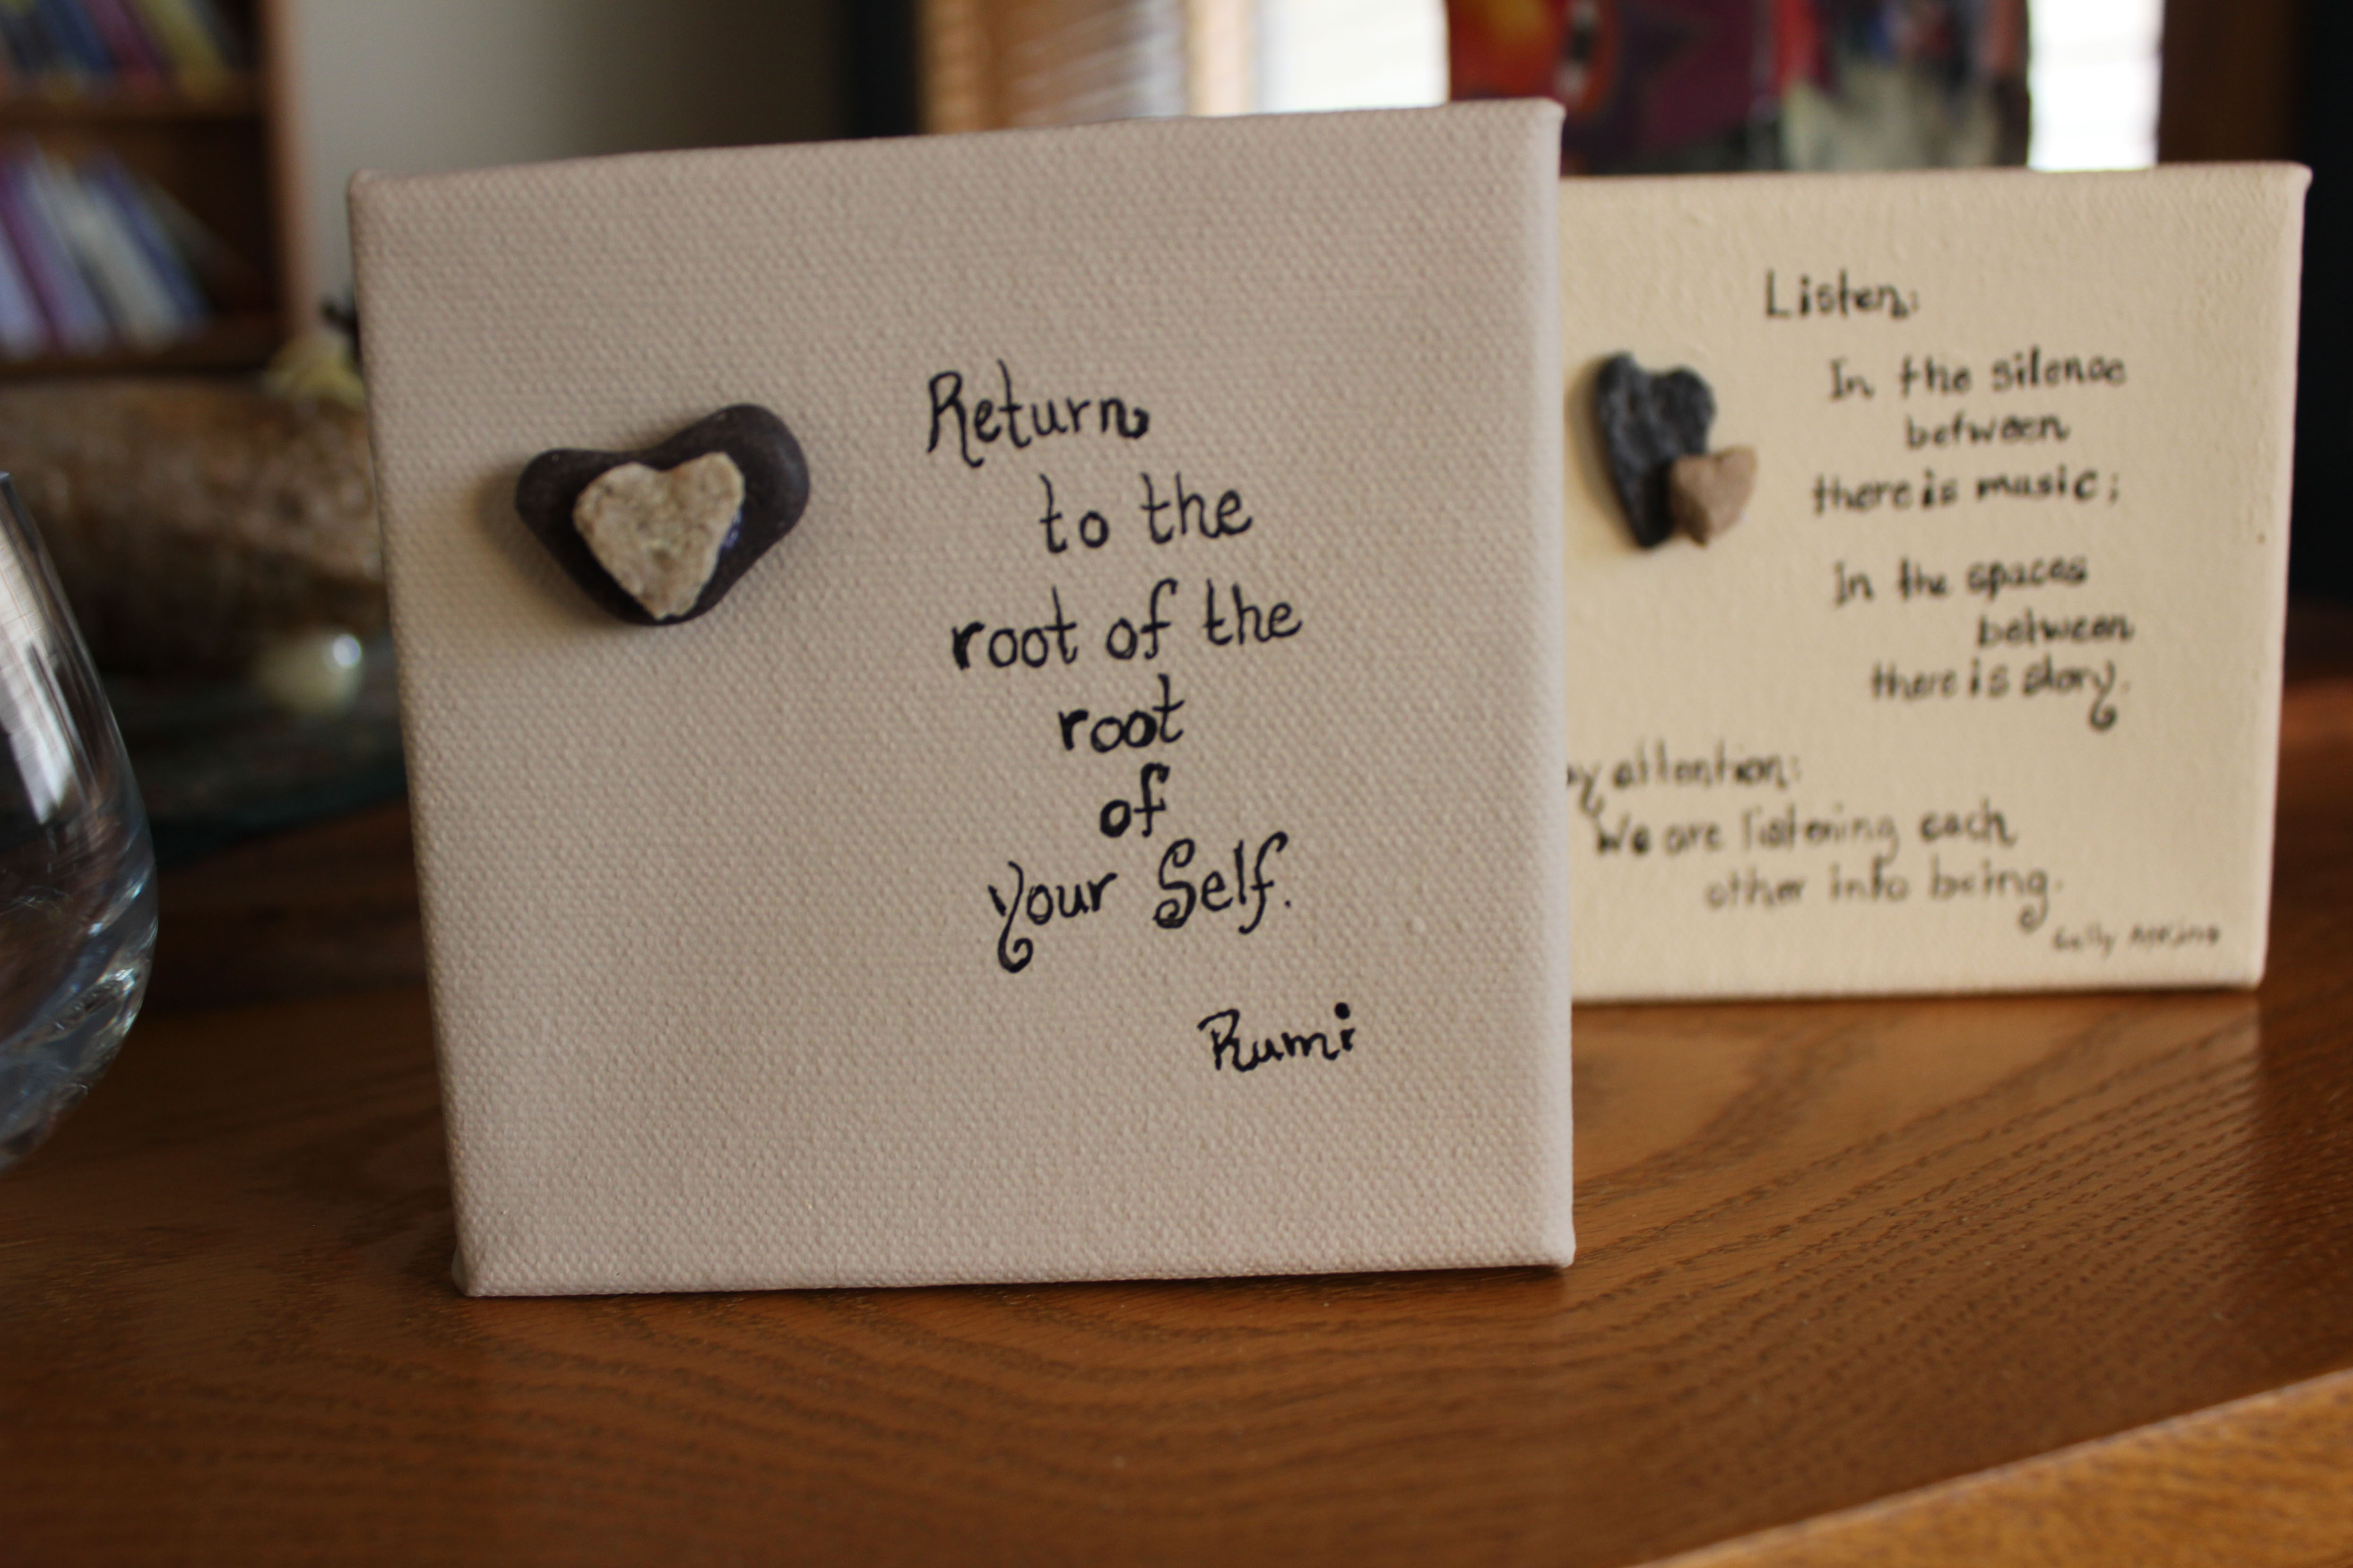 Return
to the
root of the
root
of
your Self.
Rumi
Listen:
In the silence
between
there is music;
In the spaces
between
there is story.
attention:
We are listening each
other into being.